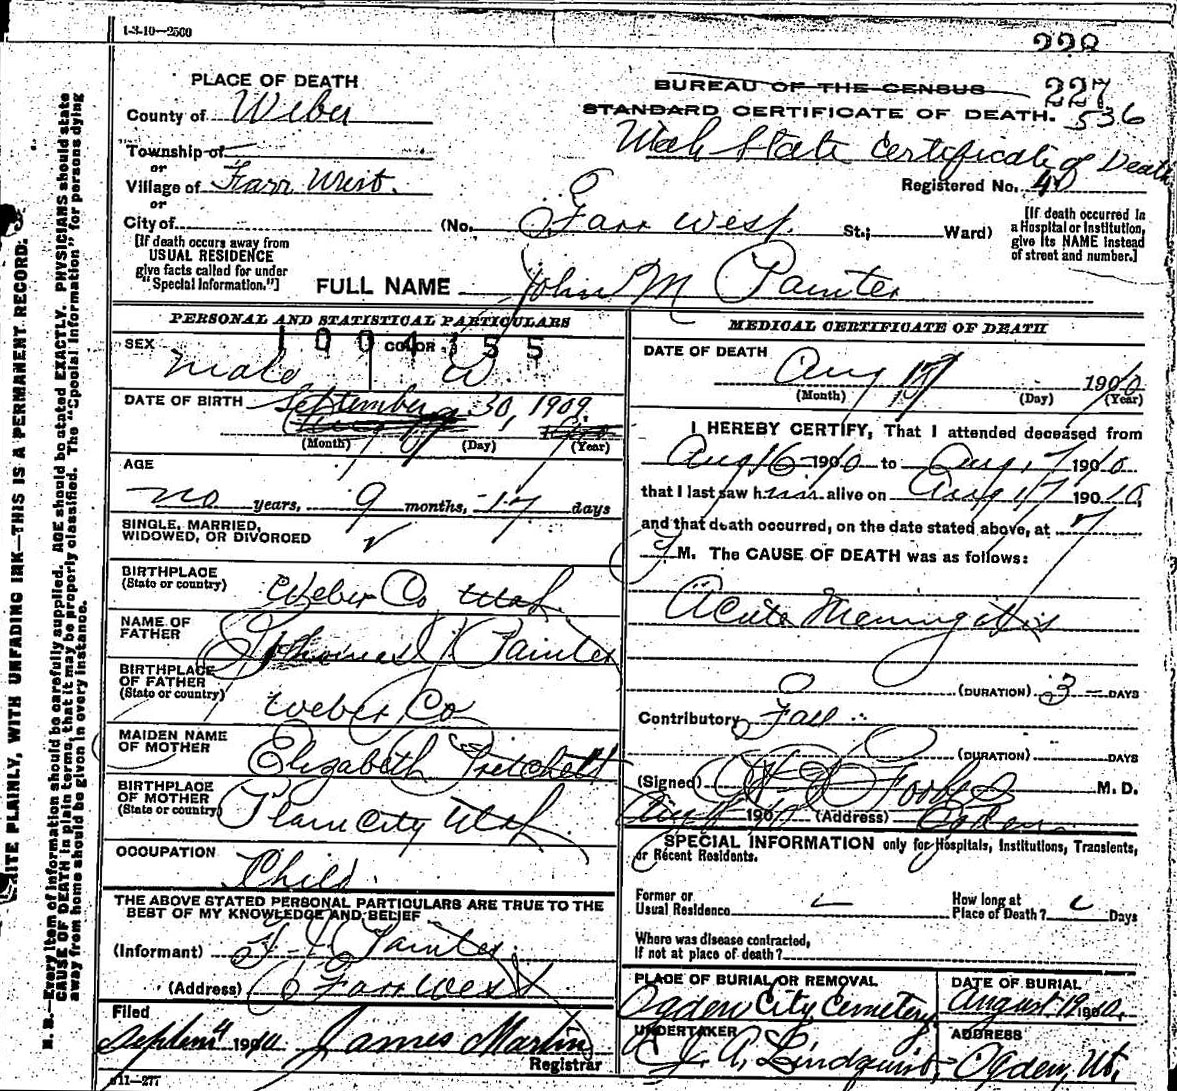 1-3-10—2500
228
227
536
PLACE OF DEATH
County of Weber
Township of
or
Village of Farr West.
or
City of
[If death occurs away from
USUAL RESIDENCE
give facts called for under
"Special Information."]
BUREAU OF THE CENSUS
STANDARD CERTIFICATE OF DEATH.
Utah State Certificate of Death
Registered No. 40
(No. Farr West. St.; Ward)
[If death occurred in
a Hospital or Institution,
give its NAME instead
of street and number.]
FULL NAME John M Painter
PERSONAL AND STATISTICAL PARTICULARS
1004155
SEX
Male
COLOR
W.
DATE OF BIRTH September 30, 1909.
(Month) (Day) (Year)
AGE
no years, 9 months, 17 days
SINGLE, MARRIED,
WIDOWED, OR DIVORCED
BIRTHPLACE
(State or country) Weber Co Utah.
NAME OF
FATHER Thomas J. Painter
BIRTHPLACE
OF FATHER
(State or country) Weber Co
MAIDEN NAME
OF MOTHER Elizabeth Pritchett
BIRTHPLACE
OF MOTHER
(State or country) Plain City Utah.
OCCUPATION
Child.
THE ABOVE STATED PERSONAL PARTICULARS ARE TRUE TO THE
BEST OF MY KNOWLEDGE AND BELIEF
(Informant) T. J. Painter.
(Address) Farr West
Filed
1910 James Martin
Registrar
11—277
MEDICAL CERTIFICATE OF DEATH
DATE OF DEATH
Aug 17 1910
(Month) (Day) (Year)
I HEREBY CERTIFY, That I attended deceased from
Aug 16 1910 to Aug 17 1910
that I last saw him alive on Aug 17 1910,
and that death occurred, on the date stated above, at 7
M. The CAUSE OF DEATH was as follows:
Acute Meningitis
(DURATION) 3 DAYS
Contributory Fall
(DURATION) DAYS
(Signed) M. D.
Aug 190 (Address) Ogden
SPECIAL INFORMATION only for Hospitals, Institutions, Transients,
or Recent Residents.
Former or
Usual Residence
How long at
Place of Death? Days
Where was disease contracted,
If not at place of death?
PLACE OF BURIAL OR REMOVAL
Ogden City Cemetery
DATE OF BURIAL
August 19 1910.
UNDERTAKER
J. A. Lindquist
ADDRESS
Ogden, Ut.
WRITE PLAINLY, WITH UNFADING INK—THIS IS A PERMANENT RECORD.
N. B.—Every item of information should be carefully supplied. AGE should be stated EXACTLY. PHYSICIANS should state
CAUSE OF DEATH in plain terms, that it may be properly classified. The "Special Information" for persons dying
away from home should be given in every instance.